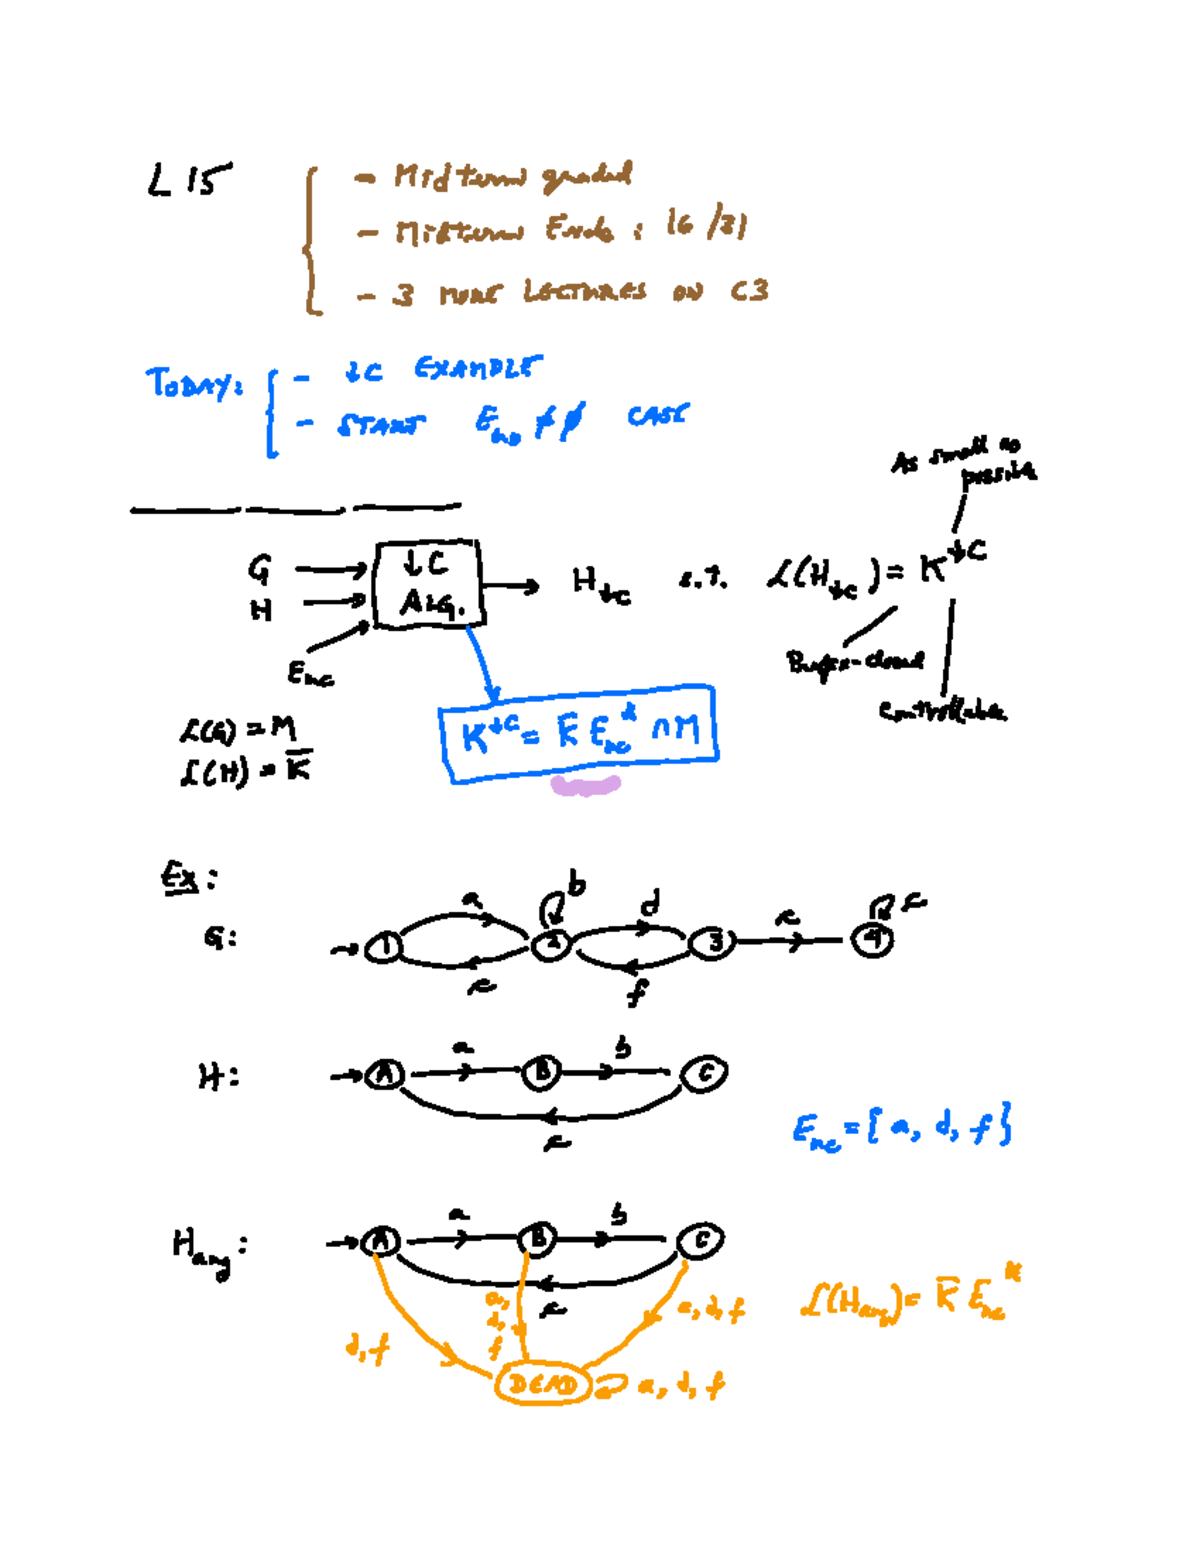 L 15
- Midterm graded
- Midterm Ends : 16/31
- 3 MORE LECTURES ON C3
TODAY:
- ↓C EXAMPLE
- START E_uo ≠ ∅ CASE
As small as possible
G
H
E_uc
↓C ALG.
H_↓C s.t. L(H_↓C) = K^↓C
Prefix-closed
Controllable
L(G) = M
L(H) = K̄
K^↓C = K̄ E_uc^* ∩ M
Ex:
G:
1 2 3 4
a b d c c
c f
H:
A B C
a b
c
E_uc = { a, d, f }
H_aug:
A B C
a b
c
d, f
a, d, f
a, d, f
DEAD
a, d, f
L(H_aug) = K̄ E_uc^*